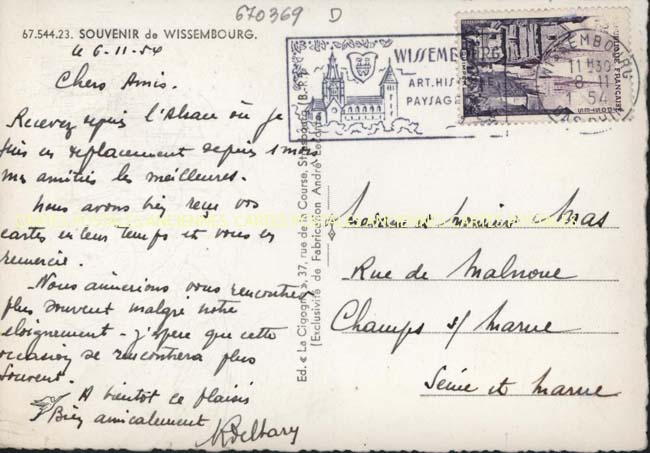 670369 D
67.544.23. SOUVENIR de WISSEMBOURG.
le 6-11-54
Chers Amis.
Recevez depuis l'Alsace où je
suis en replacement depuis 1 mois
mes amitiés les meilleures.
Nous avons bien reçu vos
cartes en leur temps et vous en
remercie.
Nous aimerions vous rencontrer
plus souvent malgré notre
éloignement - j'espère que cette
occasion se rencontrera plus
souvent.
A bientôt ce plaisir
Bien amicalement
Ed. « La Cigogne », 37, rue de la Course, Strasbourg (B.-R.)
(Exclusivité de Fabrication André
WISSEMBOURG
ART. HIS
PAYSAGE
WISSEMBOURG
11H30
8-11
54
FRANÇAISE
Madame et Monsieur
Rue de Malnoue
Champs s/ Marne
Seine et Marne